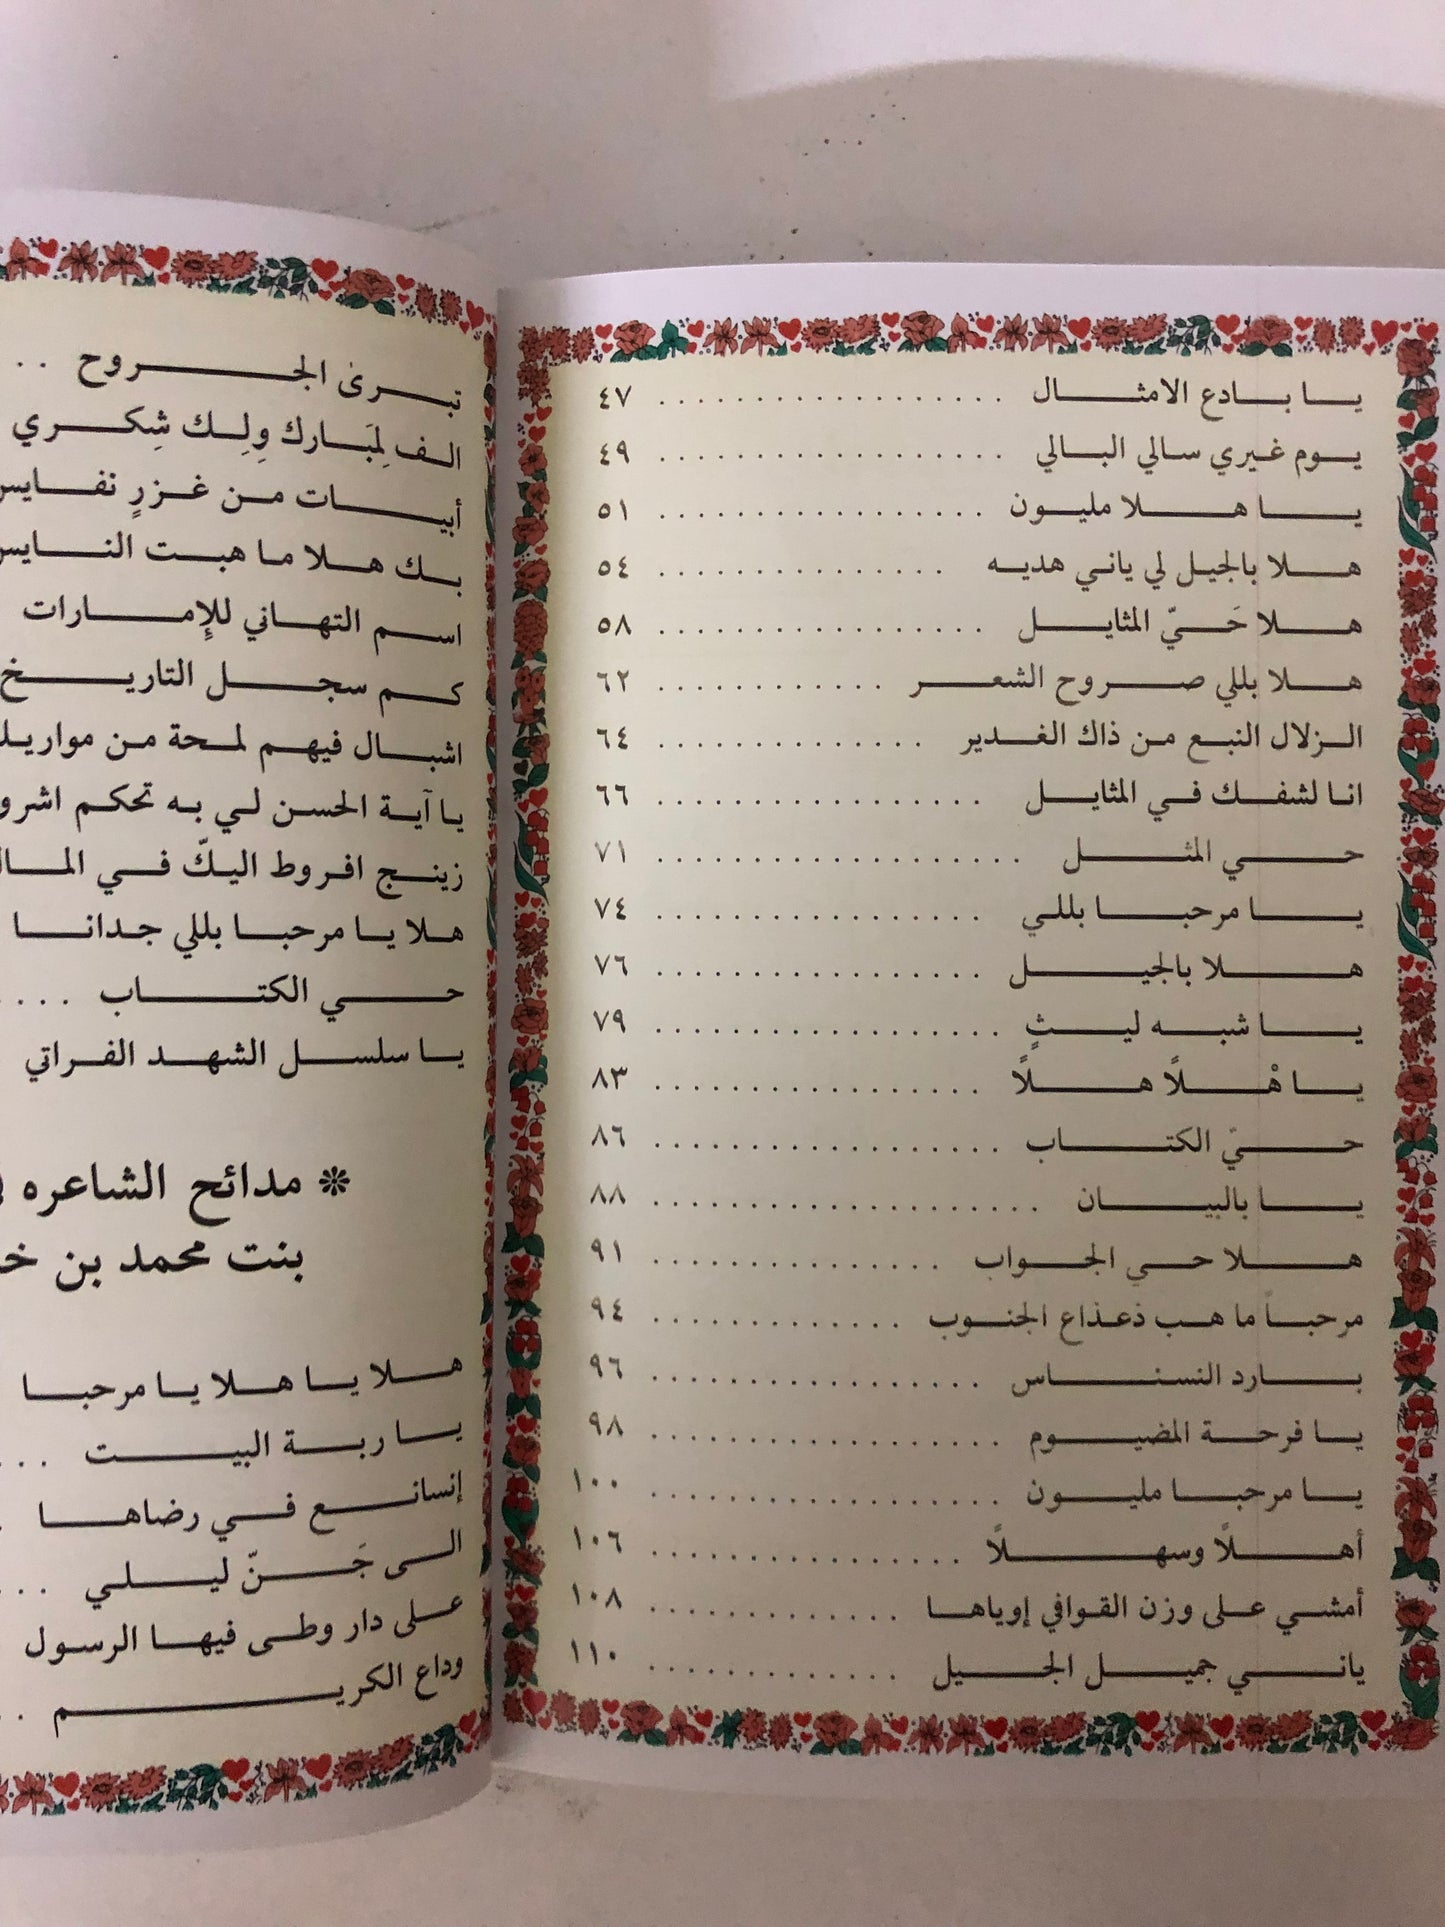 يا بادع الامثال . . . . . . . . . . . . . . . . . . ٤٧
يوم غيري سالي البالي . . . . . . . . . . . . . . . . . . ٤٩
يا هلا مليون . . . . . . . . . . . . . . . . . ٥١
هلا بالجيل لي ياني هديه . . . . . . . . . . . . . . . ٥٤
هلا حَيّ المثايل . . . . . . . . . . . . . . . . . ٥٨
هلا بللي صروح الشعر . . . . . . . . . . . . ٦٢
الزلال النبع من ذاك الغدير . . . . . . . . . . . . . . ٦٤
انا لشفك في المثايل . . . . . . . . . . . . . . . . . ٦٦
حي المثل . . . . . . . . . . . . . . . . . . . ٧١
يا مرحبا بللي . . . . . . . . . . . . . . . . . ٧٤
هلا بالجيل . . . . . . . . . . . . . . . . . ٧٦
يا شبه ليثٍ . . . . . . . . . . . . . . . . . . ٧٩
يا هْلاً هلاً . . . . . . . . . . . . . . . . . ٨٣
حيّ الكتاب . . . . . . . . . . . . . . . . . . ٨٦
يا بالبيان . . . . . . . . . . . . . . . . . . . . ٨٨
هلا حي الجواب . . . . . . . . . . . . . . . ٩١
مرحباً ما هب ذعذاع الجنوب . . . . . . . . . . . . . ٩٤
بارد النسناس . . . . . . . . . . . . . . . . . ٩٦
يا فرحة المضيوم . . . . . . . . . . . . . . . . . . ٩٨
يا مرحبا مليون . . . . . . . . . . . . . . . . . . ١٠٠
أهلاً وسهلاً . . . . . . . . . . . . . . . . ١٠٦
أمشي على وزن القوافي إوياها . . . . . . . . . . . . . ١٠٨
ياني جميل الجيل . . . . . . . . . . . . . ١١٠
تبرى الجروح . .
الف لِمبَارك وِلِك شِكري
أبيات من غزرٍ نفايس
بك هلا ما هبت النايس
اسم التهاني للإمارات
كم سجل التاريخ
اشبال فيهم لمحة من
يا آية الحسن لي به تحكم
زينج افروط اليكّ في
هلا يا مرحبا بللي جدانا
حي الكتاب . . . .
يا سلسل الشهد الفراتي
❊ مدائح الشاعره
بنت محمد بن
هلا يا هلا يا مرحبا
يا ربة البيت . . .
إنسانع في رضاها .
الى جَنّ ليلي . . .
على دار وطى فيها الرسول
وداع الكريم . .